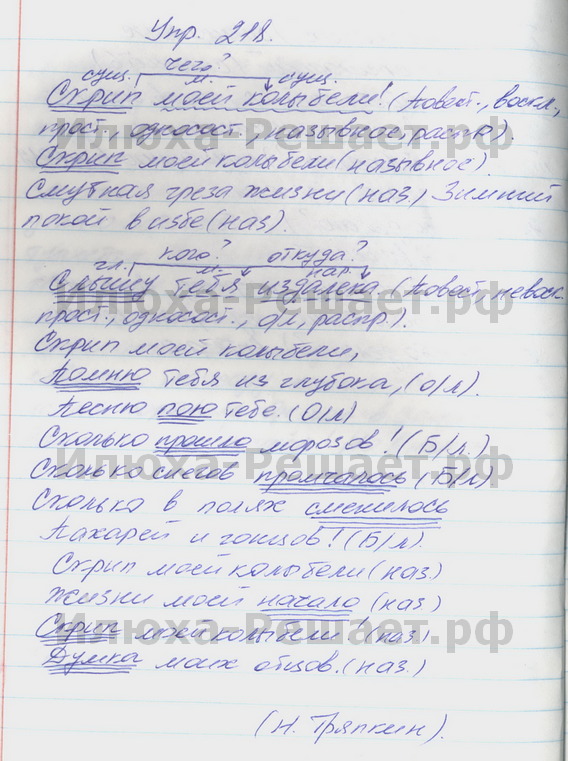 Упр. 218.
чего?
сущ. м. сущ.
Скрип моей колыбели! (Повест., воскл.,
прост., односост., назывное, распр.).
Скрип моей колыбели (назывное).
Смутная греза жизни (наз.) Зимний
покой в избе (наз).
кого? откуда?
гл. м. нар.
Слышу тебя издалека (Повест., невоск.
прост., односост., о/л, распр.).
Скрип моей колыбели,
Помню тебя из глубока, (о/л).
Песню пою тебе. (О/л)
Сколько прошло морозов! (Б/л.)
Сколько снегов промчалось (Б/л)
Сколько в полях сменилось
Пахарей и гонцов! (Б/л).
Скрип моей колыбели (наз.)
Жизни моей начало (наз)
Скрип моей колыбели (наз.)
Думка моих отцов. (наз.)
(Н. Тряпкин).
Илюха-Решает.рф
Илюха-Решает.рф
Илюха-Решает.рф
Илюха-Решает.рф